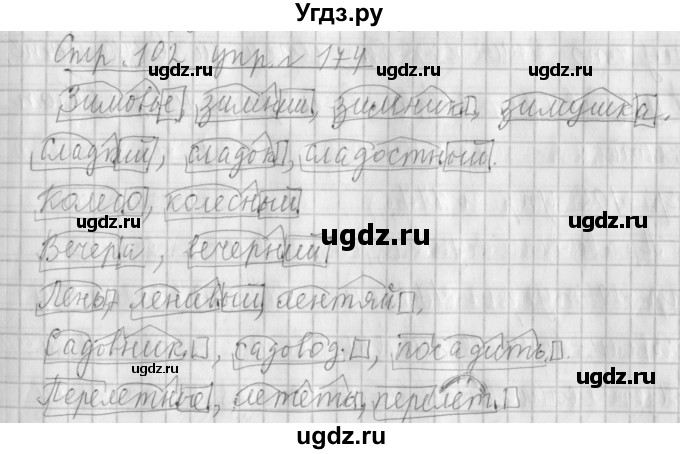 Угдз.ру
Стр. 102 упр. 174
ugdz.ru ugdz.ru
Зимовье, зимний, зимник, зимушка.
ugdz.ru ugdz.ru
сладкий, сладок, сладостный.
Колесо, колесный
ugdz.ru ugdz.ru ugdz.ru
Вечера, вечерний
Лень, ленивый, лентяй.
ugdz.ru ugdz.ru
Садовник, садовод, посадить.
ugdz.ru ugdz.ru
Перелетные, лететь, перелёт.
ugdz.ru